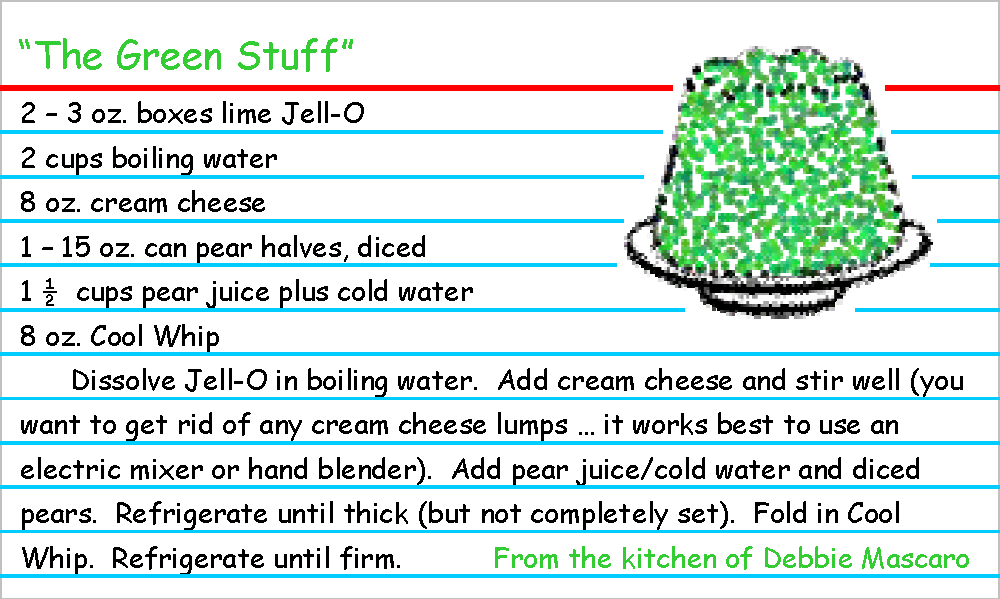 “The Green Stuff”
2 – 3 oz. boxes lime Jell-O
2 cups boiling water
8 oz. cream cheese
1 – 15 oz. can pear halves, diced
1 ½ cups pear juice plus cold water
8 oz. Cool Whip
Dissolve Jell-O in boiling water. Add cream cheese and stir well (you
want to get rid of any cream cheese lumps … it works best to use an
electric mixer or hand blender). Add pear juice/cold water and diced
pears. Refrigerate until thick (but not completely set). Fold in Cool
Whip. Refrigerate until firm. From the kitchen of Debbie Mascaro